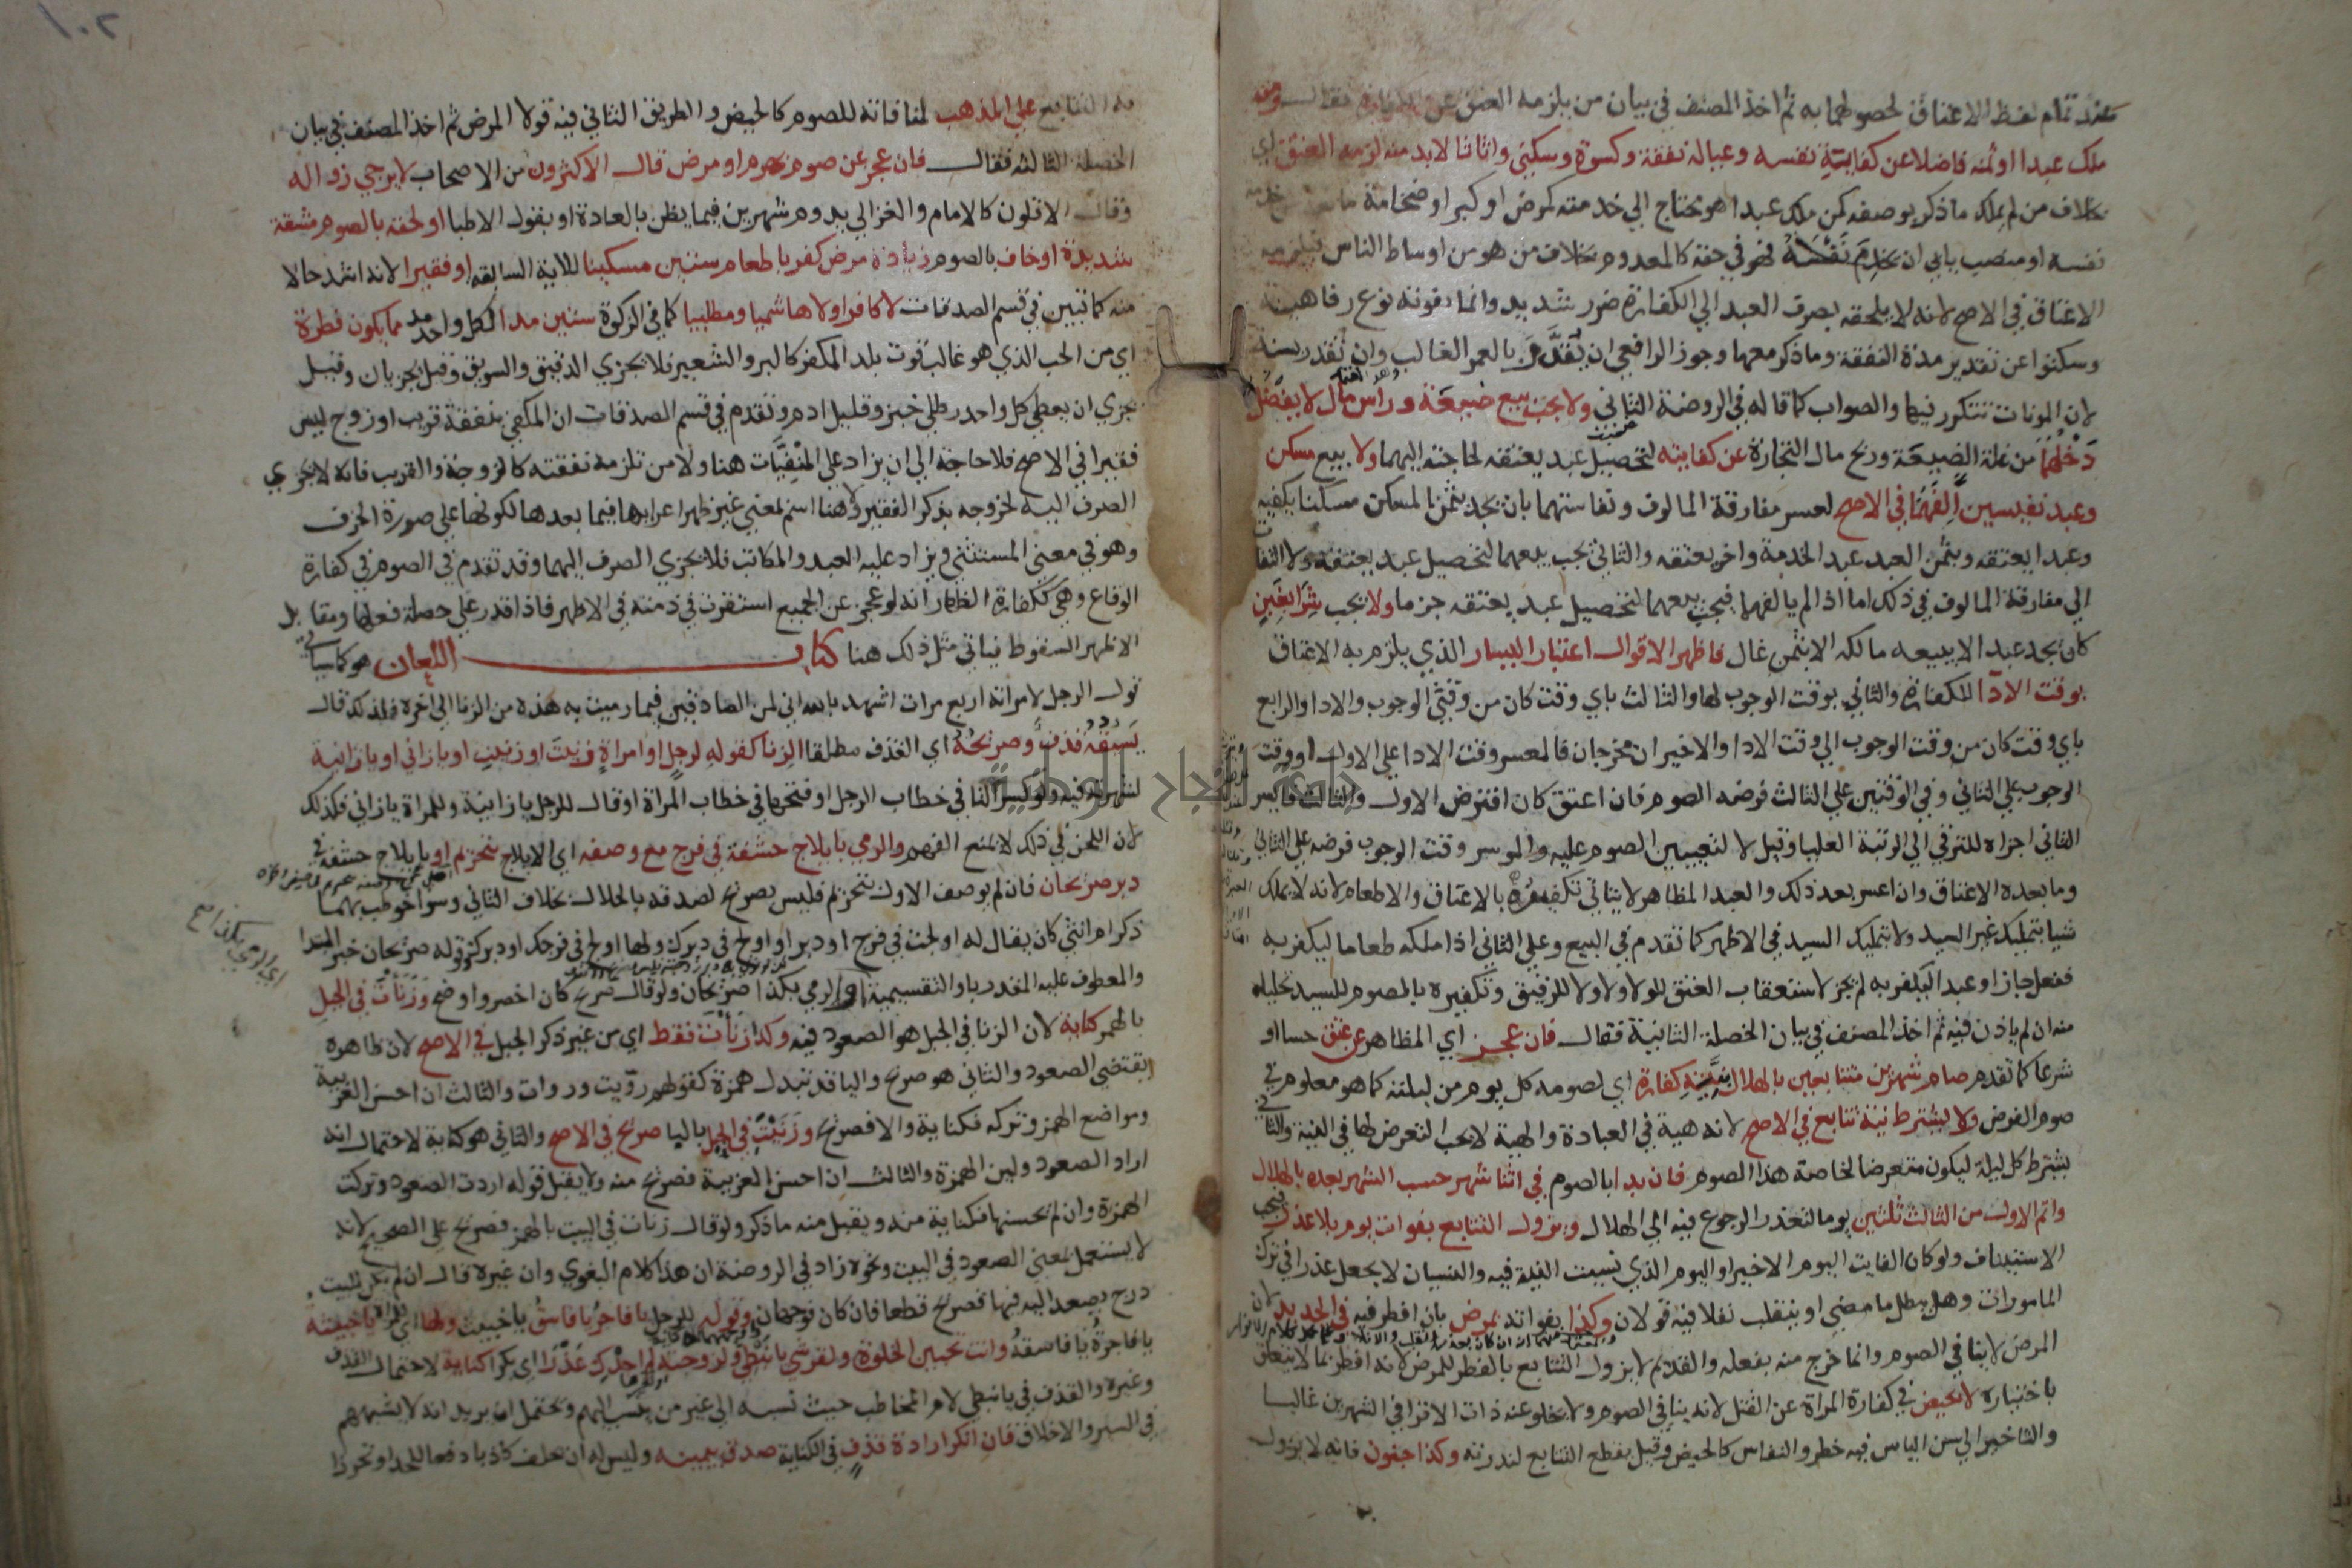 عند تمام لفظ الاعتاق لحصولهما به ثم اخذ المصنف في بيان من يلزمه العتق عن الكفارة فقال ومن
ملك عبدا او ثمنه فاضلا عن كفاية نفسه وعياله نفقة وكسوة وسكني واثاثا لابد منه لزمه العتق اي
بخلاف من لم يملك ما ذكر بوصفه كمن ملك عبدا هو محتاج الي خدمته لمرض او كبر او ضخامة مانعة من خدمة
نفسه او منصب يابي ان يخدم نفسه فهو في حقه كالمعدوم بخلاف من هو من اوساط الناس فيلزمه
الاعتاق في الاصح لانه لا يلحقه بصرف العبد الي الكفارة ضرر شديد وانما يفوته نوع رفاهية
وسكتوا عن تقدير مدة النفقة وما ذكر معها وجوز الرافعي ان تقدر بالعمر الغالب وان تقدر بسنة
لان المونات تتكرر فيها والصواب كما قاله في الروضة الثاني ولا يجب بيع ضيعة وراس مال لا يفضل
دخلهما من غلة الضيعة وربح مال التجارة عن كفايته لتحصيل عبد يعتقه لحاجته اليهما ولا بيع مسكن
وعبد نفيسين الفهما في الاصح لعسر مفارقة المالوف ونفاستهما بان يجد بثمن المسكن مسكنا يكفيه
وعبدا يعتقه وبثمن العبد عبد الخدمة واخر يعتقه والثاني يجب بيعهما لتحصيل عبد يعتقه ولا التفات
الي مفارقة المالوف في ذلك اما اذا لم يالفهما فيجب بيعهما لتحصيل عبد يعتقه جزما ولا يجب شرا بغبن
كان يجد عبدا لا يبيعه مالكه الا بثمن غال فاظهر الاقوال اعتبار اليسار الذي يلزم به الاعتاق
بوقت الادا للكفارة والثاني بوقت الوجوب لها والثالث باي وقت كان من وقتي الوجوب والادا والرابع
باي وقت كان من وقت الوجوب الي وقت الادا والاخيران مخرجان فالمعسر وقت الادا علي الاول او وقت
الوجوب علي الثاني وفي الوقتين علي الثالث فرضه الصوم فان اعتق كان افترض الاول والثالث فايسر
الثاني اجزاه للترقي الي الرتبة العليا وقيل لا لتعيين الصوم عليه والموسر وقت الوجوب فرضه علي الثاني
وما بعده الاعتاق وان اعسر بعد ذلك والعبد المظاهر لا يتاتي تكفيره بالاعتاق والاطعام لانه لا يملك
شيا بتمليك غير السيد ولا بتمليك السيد في الاظهر كما تقدم في البيع وعلي الثاني اذا ملكه طعاما ليكفر به
ففعل جاز او عبدا ليكفر به لم يجز لاستعقاب العتق للولا ولا ولا للرقيق وتكفيره بالصوم للسيد تحليله
منه ان لم ياذن فيه ثم اخذ المصنف في بيان الخصلة الثانية فقال فان عجز اي المظاهر عن عتق حسا او
شرعا كما تقدم صام شهرين متتابعين بالهلال بنية كفارة اي لصومه كل يوم من ليلته كما هو معلوم في
صوم الفرض ولا يشترط نية تتابع في الاصح لانه هية في العبادة والهية لا يجب التعرض لها في النية والثاني
يشترط كل ليلة ليكون متعرضا لخاصة هذا الصوم فان بدا بالصوم في اثنا شهر حسب الشهر بعده بالهلال
واتم الاول من الثالث ثلثين يوما لتعذر الرجوع فيه الي الهلال ويزول التتابع بفوات يوم بلا عذر فيجب
الاستيناف ولو كان الفايت اليوم الاخير او اليوم الذي نسيت النية فيه والنسيان لا يجعل عذرا في ترك
المامورات وهل يبطل ما مضي او ينقلب نفلا فيه قولان وكذا يفواته بمرض بان افطر فيه في الجديد لان
المرض لا ينافي الصوم وانما خرج منه بفعله والقديم لا يزول التتابع بالفطر للمرض لانه افطر بما لا يتعلق
باختياره لا بحيض في كفارة المراة عن القتل لانه ينافي الصوم ولا تخلو عنه ذات الاقرا في الشهرين غالبا
والتاخير الي سن الياس فيه خطر والنفاس كالحيض وقيل يقطع التتابع لندرته وكذا جنون فانه لا يزول
١٠٢
به التتابع علي المذهب لمنافاته للصوم كالحيض والطريق الثاني فيه قولا المرض ثم اخذ المصنف في بيان
الخصلة الثالثة فقال فان عجز عن صوم بهرم او مرض قال الاكثرون من الاصحاب لا يرجي زواله
وقال الاقلون كالامام والغزالي يدوم شهرين فيما يظن بالعادة او بقول الاطبا او لحقه بالصوم مشقة
شديدة او خاف بالصوم زيادة مرض كفر باطعام ستين مسكينا للاية السابقة او فقيرا لانه اشد حالا
منه كما تبين في قسم الصدقات لا كافرا ولا هاشميا ومطلبيا كما في الزكوة ستين مدا لكل واحد مد مما يكون فطرة
اي من الحب الذي هو غالب قوت بلد المكفر كالبر والشعير فلا يجزي الدقيق والسويق وقيل يجزيان وقيل
يجزي ان يعطي كل واحد رطلي خبز وقليل ادم وتقدم في قسم الصدقات ان المكفي بنفقة قريب او زوج ليس
فقيرا في الاصح فلا حاجة الي ان يزاد علي المنفيات هنا ولا من تلزمه نفقته كالزوجة والقريب فانه لا يجزي
الصرف اليه لخروجه بذكر الفقير ولا هنا اسم لمعني غير ظهر اعرابها فيما بعدها لكونها علي صورة الحرف
وهو في معني المستثني ويزاد عليه العبد والمكاتب فلا يجزي الصرف اليهما وقد تقدم في الصوم في كفارة
الوقاع وهي ككفارة الظهار انه لو عجز عن الجميع استقرت في ذمته في الاظهر فاذا قدر علي خصلة فعلها ومقابل
الاظهر السقوط فياتي مثل ذلك هنا كتاب اللعان هو كما سياتي
قول الرجل لامراته اربع مرات اشهد بالله اني لمن الصادقين فيما رميت به هذه من الزنا الي اخره فلذلك قال
يسبقه قذف وصريحه اي القذف مطلقا الزنا كقوله لرجل او امراة زنيت او زنيت او يا زاني او يا زانية
لشهرته فيه ولو كسر التا في خطاب الرجل او فتحها في خطاب المراة او قال للرجل يا زانية وللمراة يا زاني فكذلك
لان اللحن في ذلك لا يمنع الفهم والرمي بايلاج حشفة في فرج مع وصفه اي الايلاج بتحريم او بايلاج حشفة في
دبر صريحان فان لم يوصف الاول بتحريم فليس بصريح لصدقه بالحلال بخلاف الثاني وسوا خوطب بهما
ذكر ام انثي كان يقال له اولجت في فرج او دبر او اولج في دبرك ولها اولج في فرجك او دبرك وقوله صريحان خبر المبتدا
والمعطوف عليه المقدر باو التقسيمية اي الرمي بكذا صريحان ولو قال صريح كان اخصر واوضح وزنات في الجبل
اي الرمي بكذا صح
بالهمز كناية لان الزنا في الجبل هو الصعود فيه وكذا زنات فقط اي من غير ذكر الجبل في الاصح لان ظاهره
يقتضي الصعود والثاني هو صريح واليا قد تبدل همزة كقولهم رويت وروات والثالث ان احسن العربية
ومواضع الهمز وتركه فكناية والا فصريح وزنيت في الجبل باليا صريح في الاصح والثاني هو كناية لاحتمال انه
اراد الصعود ولين الهمزة والثالث ان احسن العربية فصريح منه ولا يقبل قوله اردت الصعود وتركت
الهمزة وان لم يحسنها فكناية منه ويقبل منه ما ذكر ولو قال زنات في البيت بالهمز فصريح علي الصحيح لانه
لا يستعمل بمعني الصعود في البيت ونحوه زاد في الروضة ان هذا كلام البغوي وان غيره قال ان لم يكن للبيت
درج يصعد اليه فيها فصريح قطعا فان كان فوجهان وقوله للرجل يا فاجر يا فاسق يا خبيث ولها اي للمراة يا خبيثة
يا فاجرة يا فاسقة وانت تحبين الخلوة ولقرشي يا نبطي ولزوجته لم اجدك عذرا اي بكرا كناية لاحتمال القذف
وغيره والقذف في يا نبطي لام المخاطب حيث نسبه الي غير من ينسب اليهم ويحتمل ان يريد انه لا يشبههم
في السير والاخلاق فان انكر ارادة قذف في الكناية صدق بيمينه وليس له ان يحلف كاذبا دفعا للحد او تحرزا
جامع النجاح الوطنية